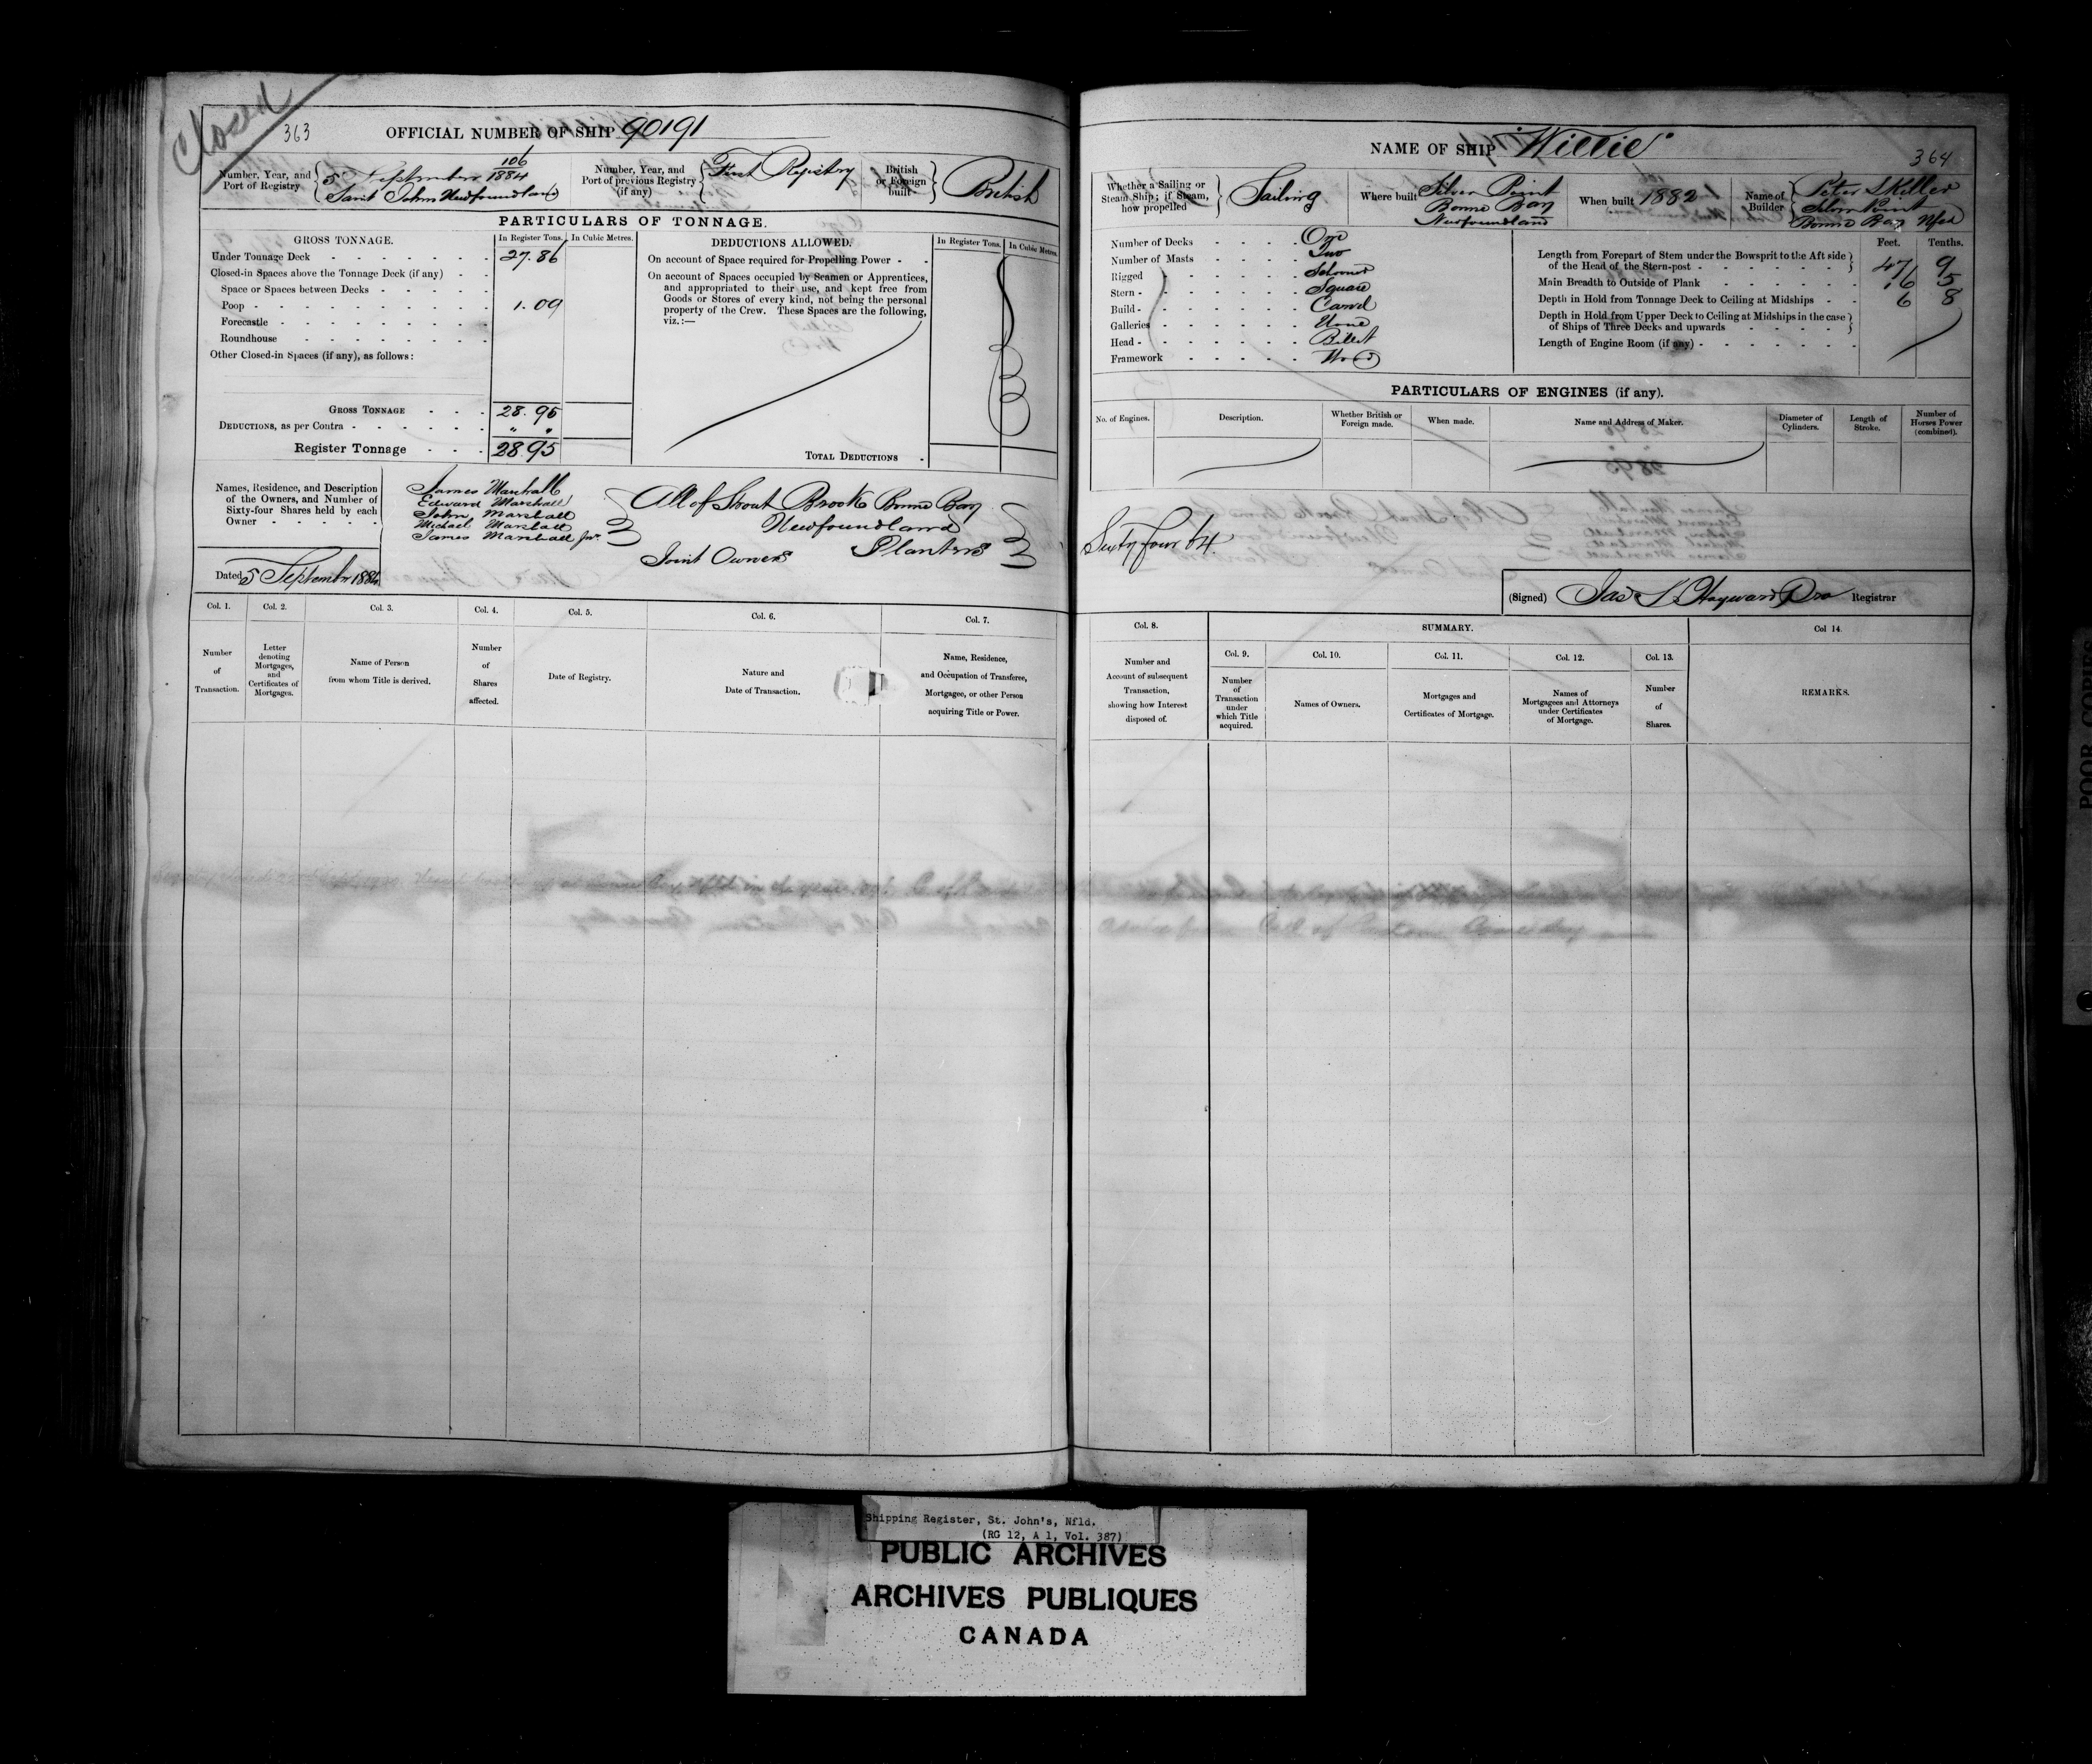 Closed
363
OFFICIAL NUMBER OF SHIP 90191
Number, Year, and Port of Registry
106
5 September 1884
Saint Johns Newfoundland
Number, Year, and Port of previous Registry (if any)
First Registry
British or Foreign built
British
PARTICULARS OF TONNAGE.
GROSS TONNAGE.
In Register Tons.
In Cubic Metres.
Under Tonnage Deck 27.86
Closed-in Spaces above the Tonnage Deck (if any)
Space or Spaces between Decks
Poop 1.09
Forecastle
Roundhouse
Other Closed-in Spaces (if any), as follows:
GROSS TONNAGE 28.95
DEDUCTIONS, as per Contra " "
Register Tonnage 28.95
DEDUCTIONS ALLOWED.
In Register Tons.
In Cubic Metres.
On account of Space required for Propelling Power
On account of Spaces occupied by Seamen or Apprentices,
and appropriated to their use, and kept free from
Goods or Stores of every kind, not being the personal
property of the Crew. These Spaces are the following,
viz.:—
TOTAL DEDUCTIONS
Names, Residence, and Description
of the Owners, and Number of
Sixty-four Shares held by each
Owner
James Marshall
Edward Marshall
John Marshall
Michael Marshall
James Marshall Jnr.
All of Trout Brook Bonne Bay
Newfoundland
Planters
Joint Owners
Dated 5 September 1884
Col. 1.
Number
of
Transaction.
Col. 2.
Letter
denoting
Mortgages,
and
Certificates of
Mortgages.
Col. 3.
Name of Person
from whom Title is derived.
Col. 4.
Number
of
Shares
affected.
Col. 5.
Date of Registry.
Col. 6.
Nature and
Date of Transaction.
Col. 7.
Name, Residence,
and Occupation of Transferee,
Mortgagee, or other Person
acquiring Title or Power.
NAME OF SHIP "Willie"
364
Whether a Sailing or
Steam Ship; if Steam,
how propelled
Sailing
Where built
Silver Point
Bonne Bay
Newfoundland
When built 1882
Name of
Builder
Peter Skiller
Silver Point
Bonne Bay Nfld
Number of Decks One
Number of Masts Two
Rigged Schooner
Stern Square
Build Carvel
Galleries None
Head Billet
Framework Wood
Feet.
Tenths.
Length from Forepart of Stem under the Bowsprit to the Aft side
of the Head of the Stern-post 47 9
Main Breadth to Outside of Plank 16 5
Depth in Hold from Tonnage Deck to Ceiling at Midships 6 8
Depth in Hold from Upper Deck to Ceiling at Midships in the case
of Ships of Three Decks and upwards
Length of Engine Room (if any)
PARTICULARS OF ENGINES (if any).
No. of Engines.
Description.
Whether British or
Foreign made.
When made.
Name and Address of Maker.
Diameter of
Cylinders.
Length of
Stroke.
Number of
Horses Power
(combined).
Sixty four 64.
(Signed) Jas S. Hayward Pro Registrar
Col. 8.
Number and
Account of subsequent
Transaction,
showing how Interest
disposed of.
SUMMARY.
Col. 9.
Number
of
Transaction
under
which Title
acquired.
Col. 10.
Names of Owners.
Col. 11.
Mortgages and
Certificates of Mortgage.
Col. 12.
Names of
Mortgagees and Attorneys
under Certificates
of Mortgage.
Col. 13.
Number
of
Shares.
Col 14.
REMARKS.
Shipping Register, St. John's, Nfld.
(RG 12, A 1, Vol. 387)
PUBLIC ARCHIVES
ARCHIVES PUBLIQUES
CANADA
POOR COPIES